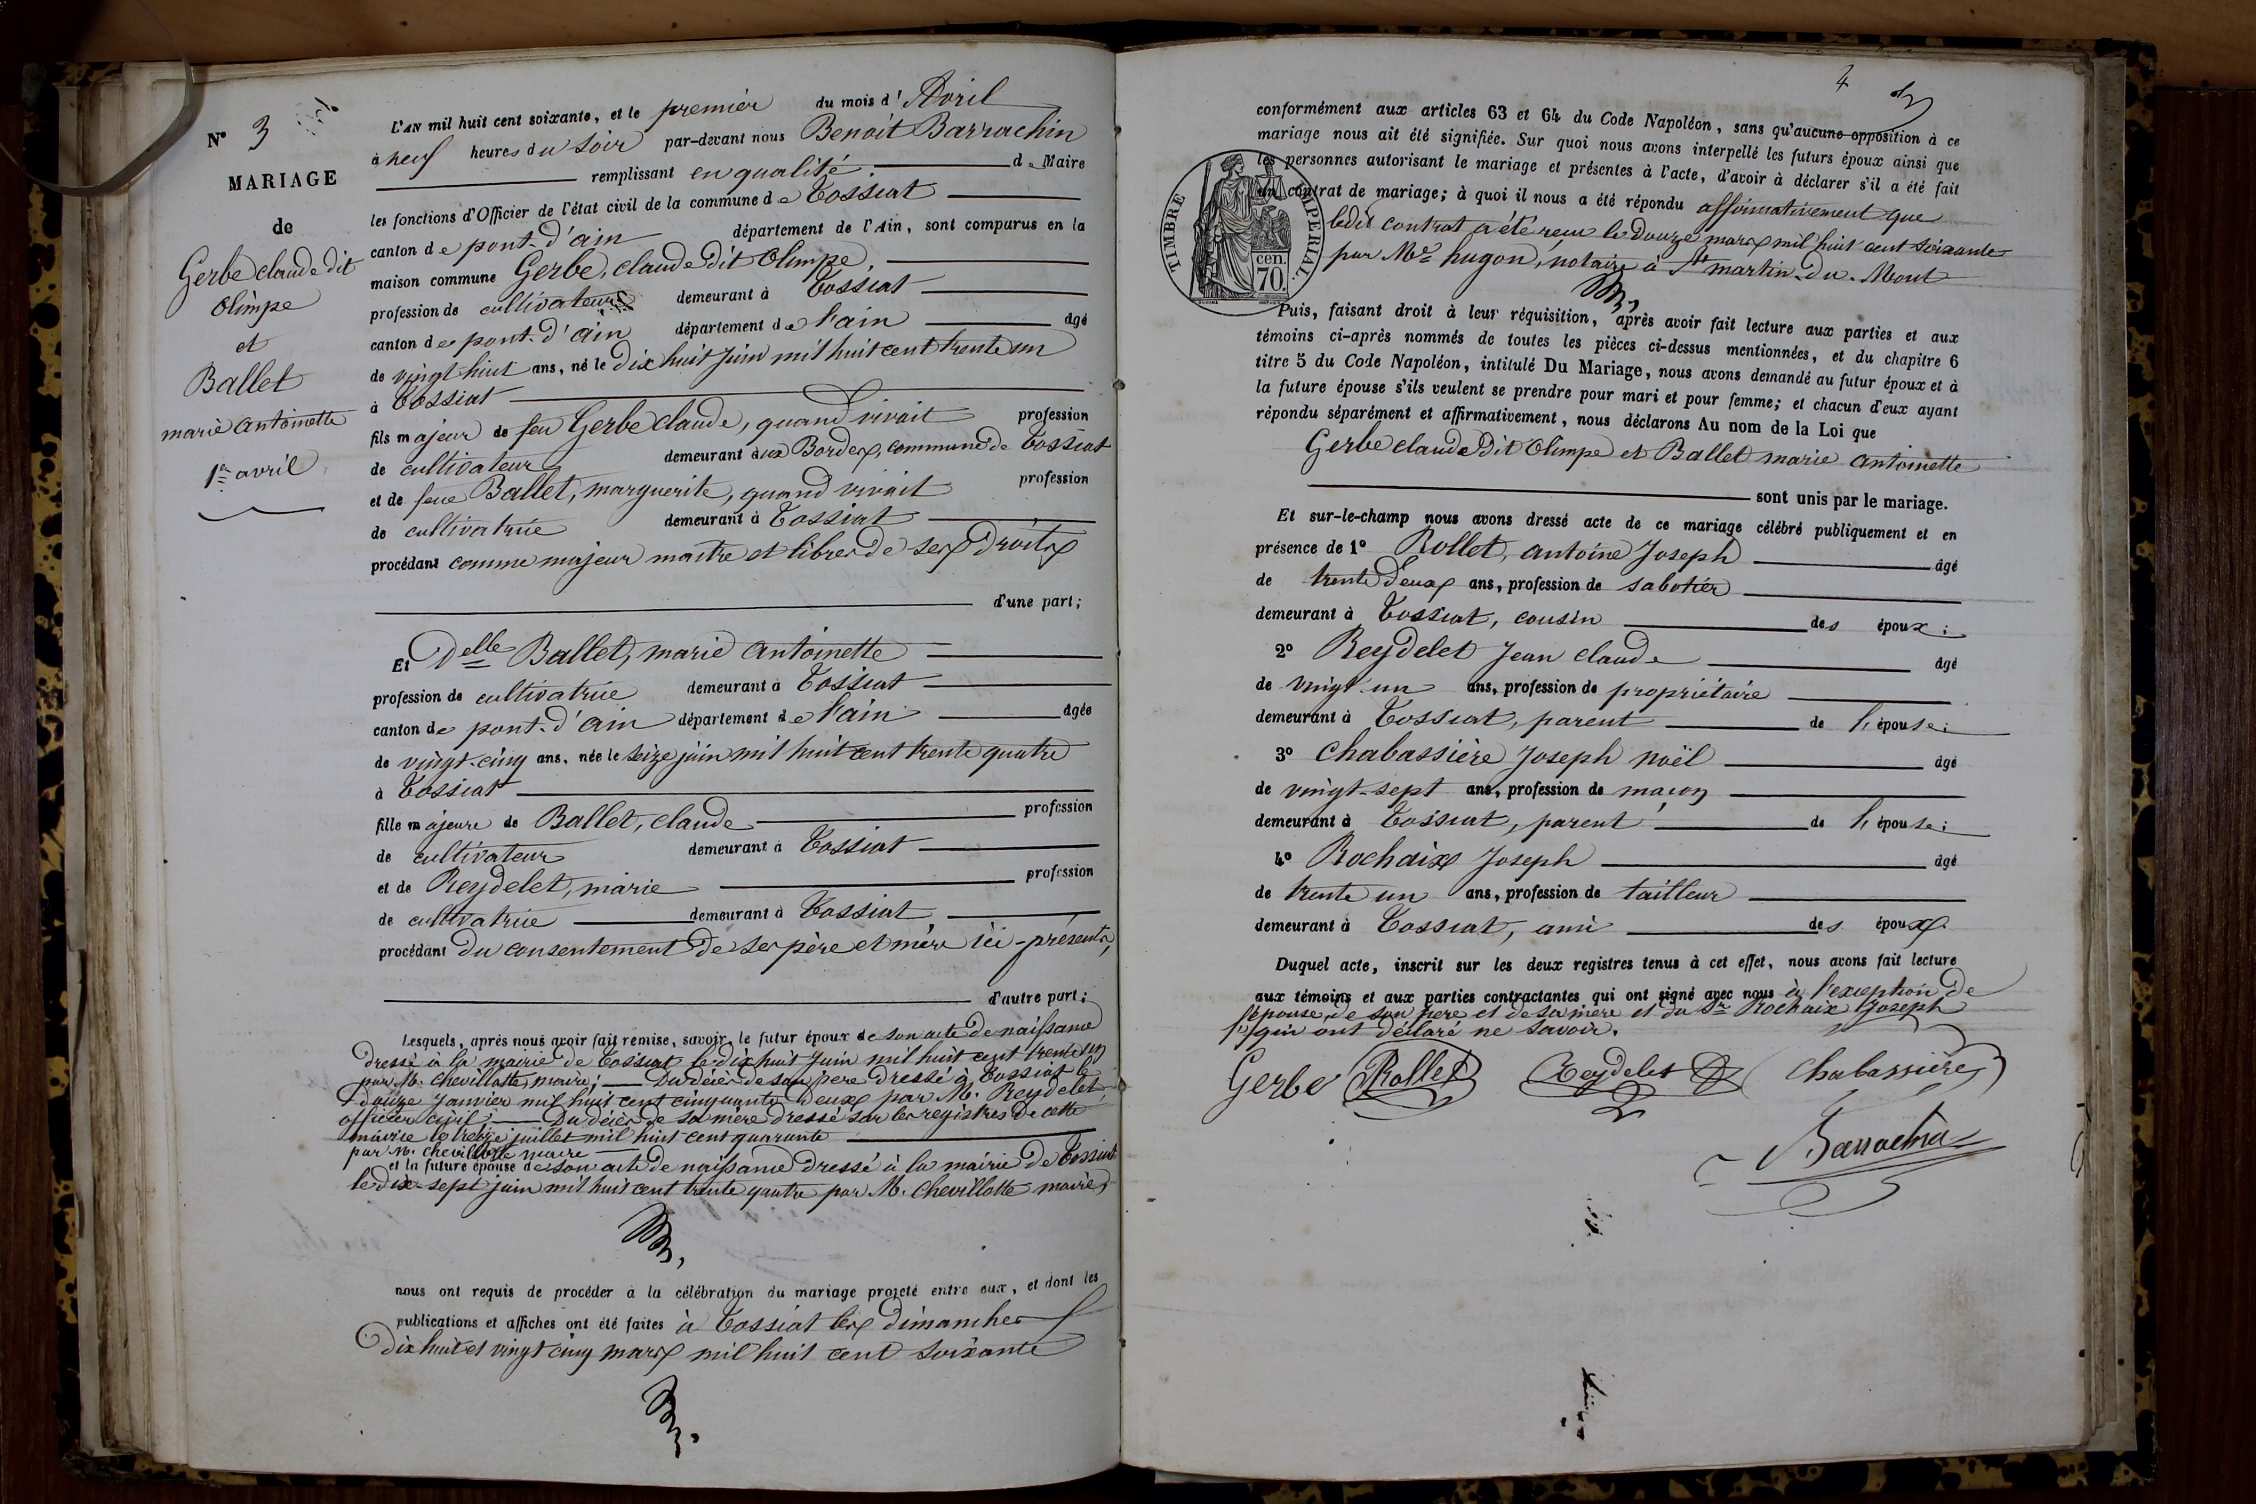 N° 3
MARIAGE
de
Gerbe claude dit
Olimpe
et
Ballet
marie antoinette
1er avril
L'AN mil huit cent soixante, et le premier du mois d'Avril
à neuf heures du soir par-devant nous Benoit Barrachin
remplissant en qualité de Maire
les fonctions d'Officier de l'état civil de la commune de Tossiat
canton de pont-d'ain département de l'Ain, sont comparus en la
maison commune Gerbe, claude dit Olimpe,
profession de cultivateur demeurant à Tossiat
canton de pont-d'ain département de l'ain âgé
de vingt huit ans, né le dix huit juin mil huit cent trente un
à Tossiat
fils majeur de feu Gerbe claude, quand vivait profession
de cultivateur demeurant aux Bordes, commune de Tossiat
et de feue Ballet, marguerite, quand vivait profession
de cultivatrice demeurant à Tossiat
procédant comme majeur maitre et libre de ses droits
d'une part;
Et Delle Ballet, marie antoinette
profession de cultivatrice demeurant à Tossiat
canton de pont-d'ain département de l'ain âgée
de vingt-cinq ans, née le seize juin mil huit cent trente quatre
à Tossiat
fille majeure de Ballet, claude profession
de cultivateur demeurant à Tossiat
et de Reydelet, marie profession
de cultivatrice demeurant à Tossiat
procédant du consentement de ses père et mère ici-présents,
d'autre part;
Lesquels, après nous avoir fait remise, savoir, le futur époux de son acte de naissance
dressé à la mairie de Tossiat le dix huit juin mil huit cent trente un
par M. Chevillotte, maire; Du décès de son père dressé à Tossiat le
douze janvier mil huit cent cinquante deux par M. Reydelet,
officier civil; Du décès de sa mère dressé sur les registres de cette
mairie le treize juillet mil huit cent quarante
par M. Chevillotte maire
et la future épouse de son acte de naissance dressé à la mairie de Tossiat
le dix-sept juin mil huit cent trente quatre par M. Chevillotte maire,
nous ont requis de procéder à la célébration du mariage projeté entre eux, et dont les
publications et affiches ont été faites à Tossiat les dimanches
dix huit et vingt cinq mars mil huit cent soixante
4
conformément aux articles 63 et 64 du Code Napoléon, sans qu'aucune opposition à ce
mariage nous ait été signifiée. Sur quoi nous avons interpellé les futurs époux ainsi que
les personnes autorisant le mariage et présentes à l'acte, d'avoir à déclarer s'il a été fait
un contrat de mariage; à quoi il nous a été répondu affirmativement que
ledit contrat a été reçu le douze mars mil huit cent soixante
par Me hugon, notaire à St martin-du-Mont
TIMBRE IMPERIAL.
cen.
70.
Puis, faisant droit à leur réquisition, après avoir fait lecture aux parties et aux
témoins ci-après nommés de toutes les pièces ci-dessus mentionnées, et du chapitre 6
titre 5 du Code Napoléon, intitulé Du Mariage, nous avons demandé au futur époux et à
la future épouse s'ils veulent se prendre pour mari et pour femme; et chacun d'eux ayant
répondu séparément et affirmativement, nous déclarons Au nom de la Loi que
Gerbe claude dit Olimpe et Ballet marie antoinette
sont unis par le mariage.
Et sur-le-champ nous avons dressé acte de ce mariage célébré publiquement et en
présence de 1° Rollet, antoine Joseph âgé
de trente deux ans, profession de sabotier
demeurant à Tossiat, cousin des époux;
2° Reydelet Jean claude âgé
de vingt-un ans, profession de propriétaire
demeurant à Tossiat, parent de l'épouse;
3° Chabassière Joseph noël âgé
de vingt-sept ans, profession de maçon
demeurant à Tossiat, parent de l'épouse;
4° Rochaix Joseph âgé
de trente un ans, profession de tailleur
demeurant à Tossiat, ami des époux.
Duquel acte, inscrit sur les deux registres tenus à cet effet, nous avons fait lecture
aux témoins et aux parties contractantes qui ont signé avec nous à l'exception de
l'épouse, de son père et de sa mère et du Sr Rochaix Joseph
qui ont déclaré ne savoir.
Gerbe Rollet Reydelet Chabassière
Barrachin